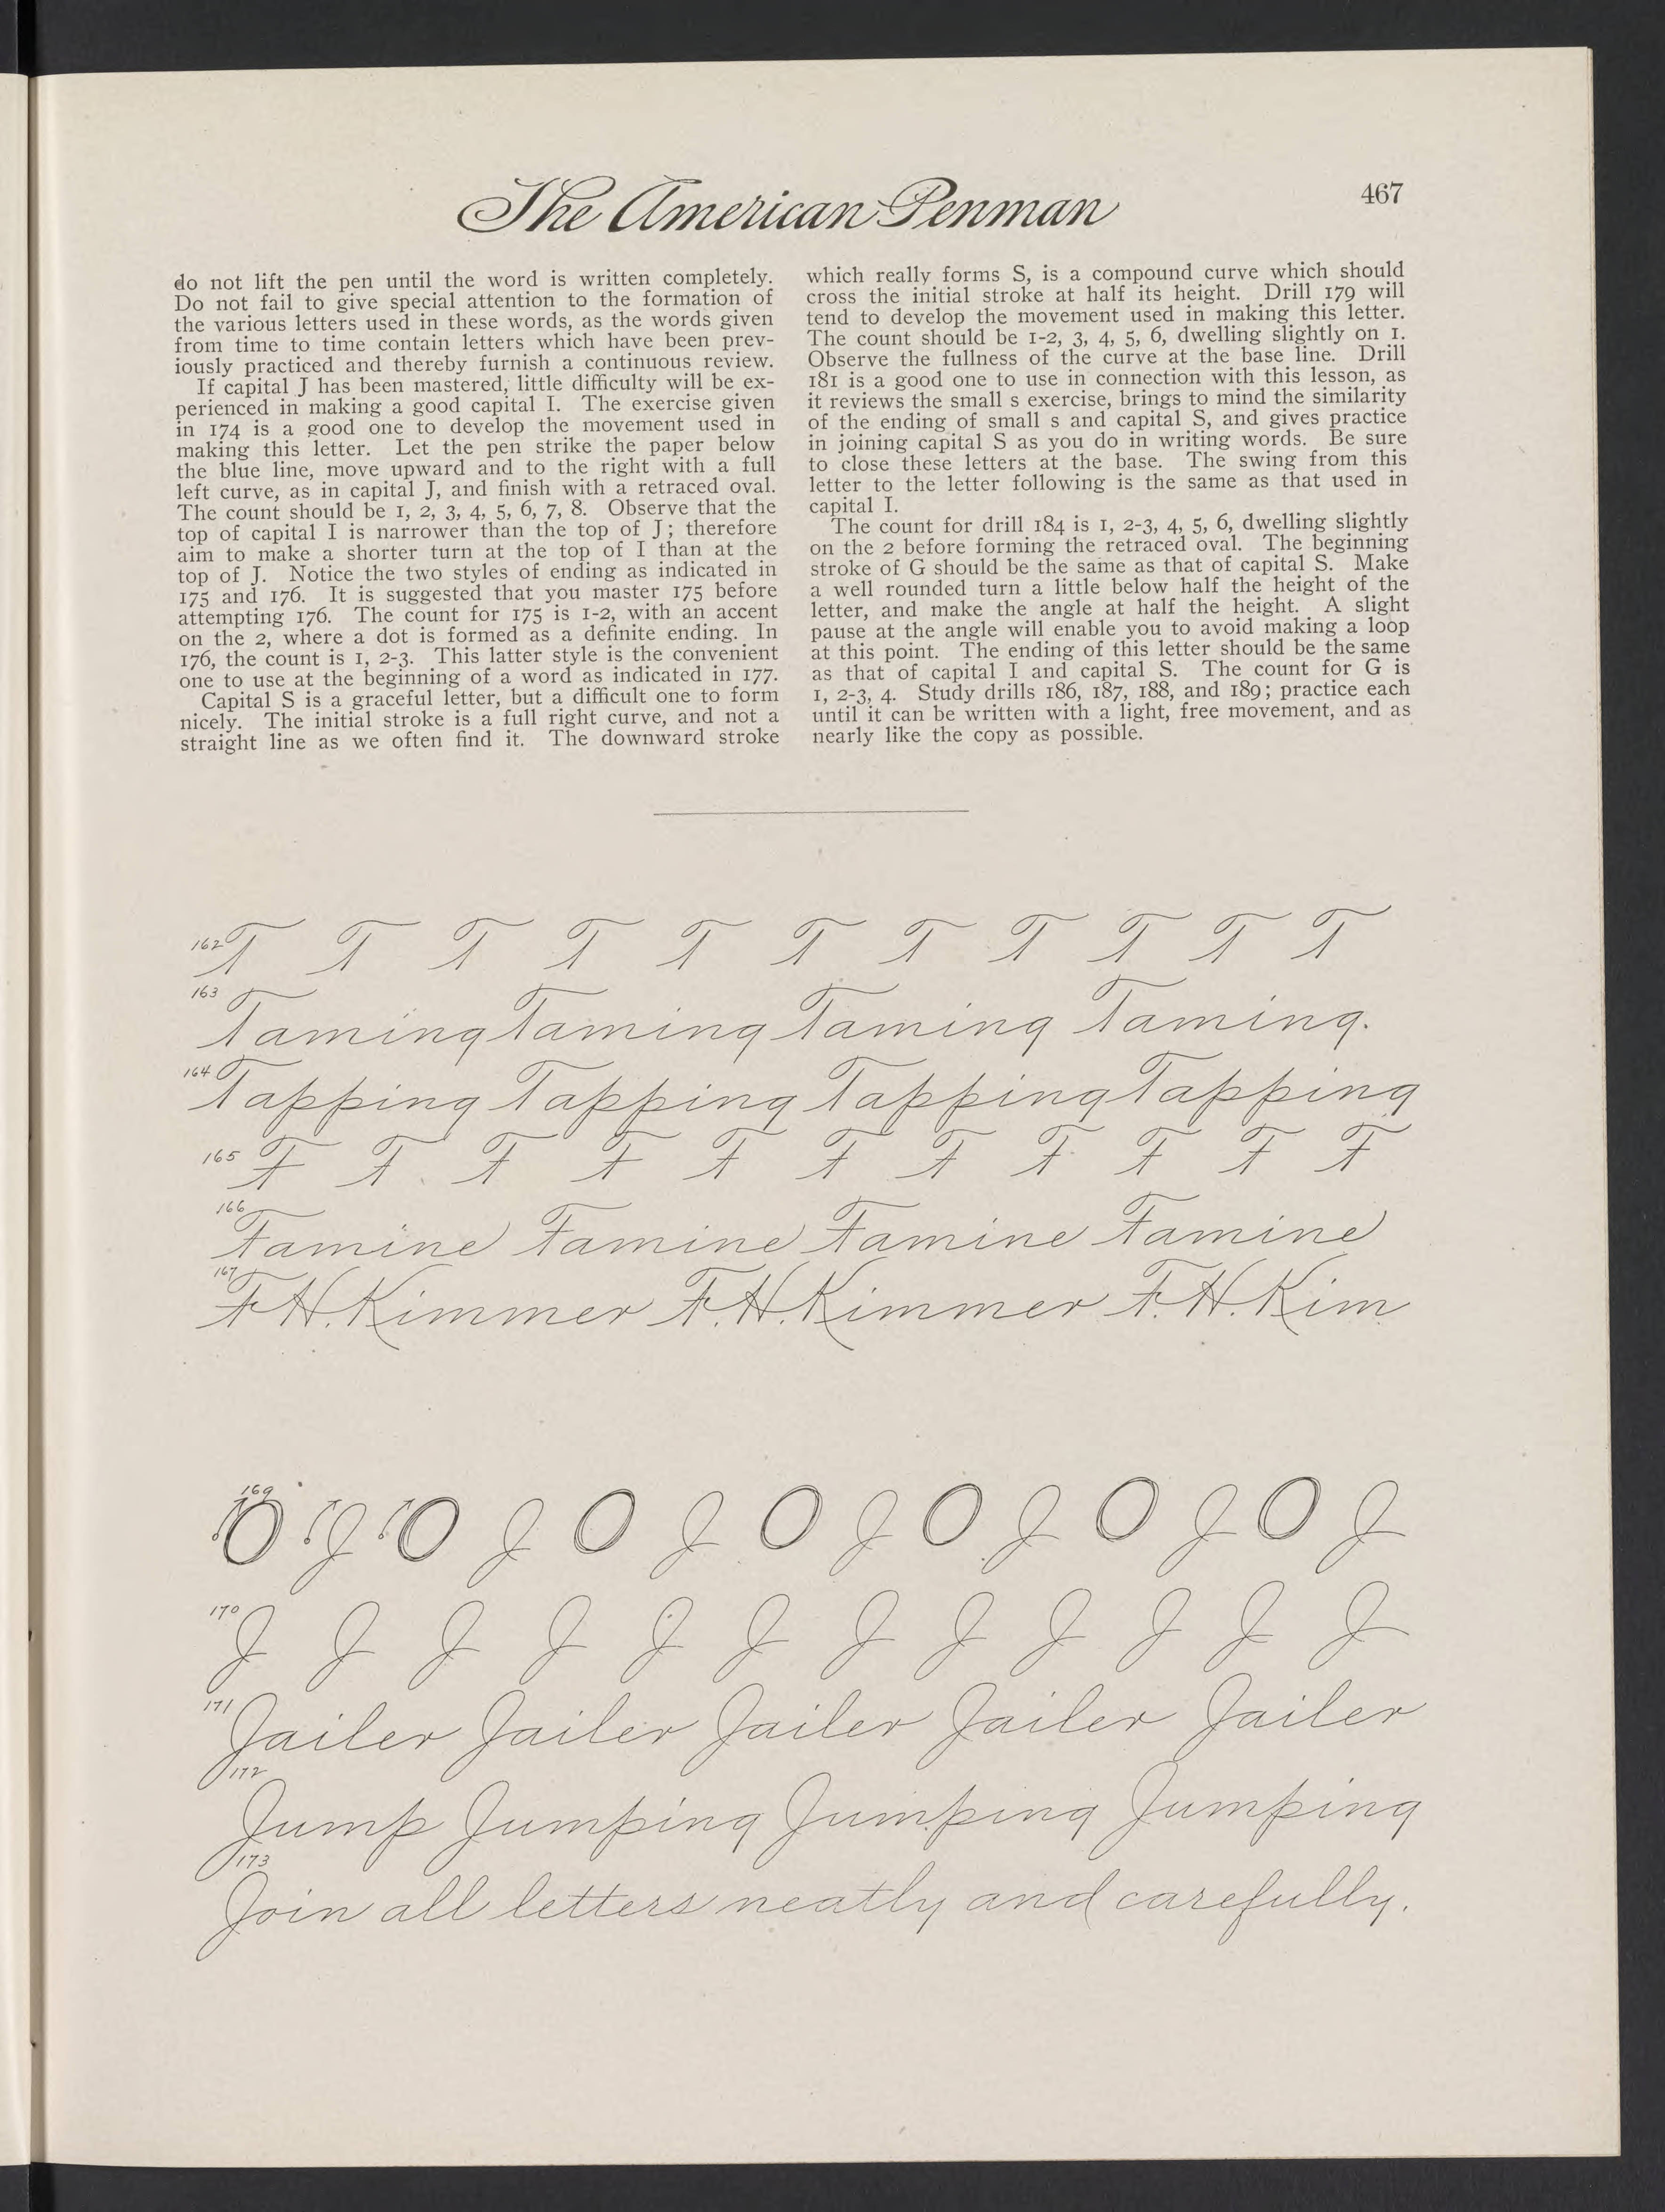 The American Penman
467
do not lift the pen until the word is written completely.
Do not fail to give special attention to the formation of
the various letters used in these words, as the words given
from time to time contain letters which have been prev-
iously practiced and thereby furnish a continuous review.
If capital J has been mastered, little difficulty will be ex-
perienced in making a good capital I. The exercise given
in 174 is a good one to develop the movement used in
making this letter. Let the pen strike the paper below
the blue line, move upward and to the right with a full
left curve, as in capital J, and finish with a retraced oval.
The count should be 1, 2, 3, 4, 5, 6, 7, 8. Observe that the
top of capital I is narrower than the top of J; therefore
aim to make a shorter turn at the top of I than at the
top of J. Notice the two styles of ending as indicated in
175 and 176. It is suggested that you master 175 before
attempting 176. The count for 175 is 1-2, with an accent
on the 2, where a dot is formed as a definite ending. In
176, the count is 1, 2-3. This latter style is the convenient
one to use at the beginning of a word as indicated in 177.
Capital S is a graceful letter, but a difficult one to form
nicely. The initial stroke is a full right curve, and not a
straight line as we often find it. The downward stroke
which really forms S, is a compound curve which should
cross the initial stroke at half its height. Drill 179 will
tend to develop the movement used in making this letter.
The count should be 1-2, 3, 4, 5, 6, dwelling slightly on 1.
Observe the fullness of the curve at the base line. Drill
181 is a good one to use in connection with this lesson, as
it reviews the small s exercise, brings to mind the similarity
of the ending of small s and capital S, and gives practice
in joining capital S as you do in writing words. Be sure
to close these letters at the base. The swing from this
letter to the letter following is the same as that used in
capital I.
The count for drill 184 is 1, 2-3, 4, 5, 6, dwelling slightly
on the 2 before forming the retraced oval. The beginning
stroke of G should be the same as that of capital S. Make
a well rounded turn a little below half the height of the
letter, and make the angle at half the height. A slight
pause at the angle will enable you to avoid making a loop
at this point. The ending of this letter should be the same
as that of capital I and capital S. The count for G is
1, 2-3, 4. Study drills 186, 187, 188, and 189; practice each
until it can be written with a light, free movement, and as
nearly like the copy as possible.
162 T T T T T T T T T T T
163 Taming Taming Taming Taming.
164 Tapping Tapping Tapping Tapping
165 F F F F F F F F F F F
166 Famine Famine Famine Famine
167 F H. Kimmer F. H. Kimmer F. H. Kim
169 O J O J O J O J O J O J O J
170 J J J J J J J J J J J J
171 Jailer Jailer Jailer Jailer Jailer
172 Jump Jumping Jumping Jumping
173 Join all letters neatly and carefully.